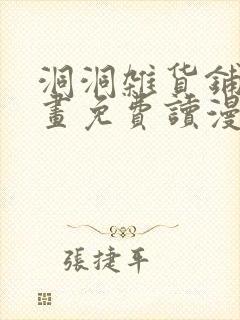 洞洞雜貨鋪
畫免費讀漫
張捷平